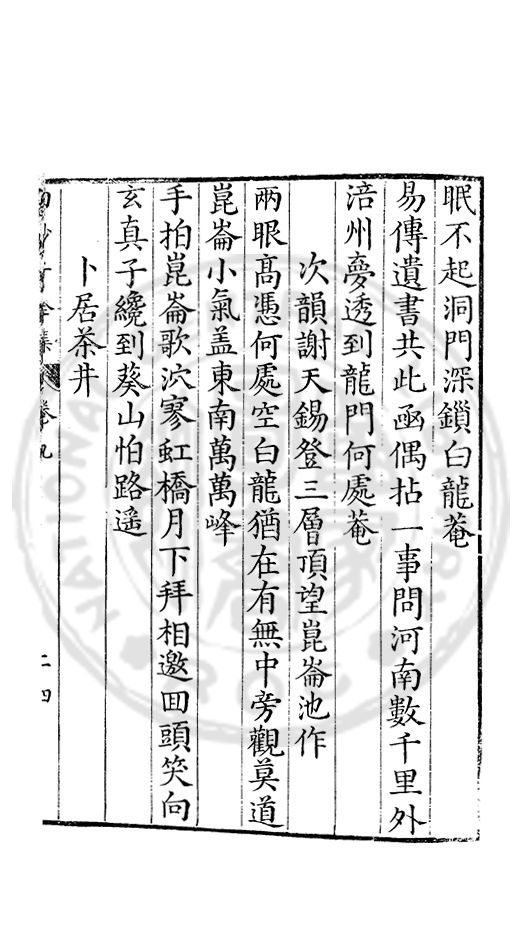 眠不起洞門深鎖白龍菴
易傳遺書共此函偶拈一事問河南數千里外
涪州夢透到龍門何處菴
次韻謝天錫登三層頂望崑崙池作
兩眼高憑何處空白龍猶在有無中旁觀莫道
崑崙小氣盖東南萬萬峰
手拍崑崙歌泬寥虹橋月下拜相邀囬頭笑向
玄真子纔到葵山怕路遥
卜居茶井
卷九
二四
NATIONAL